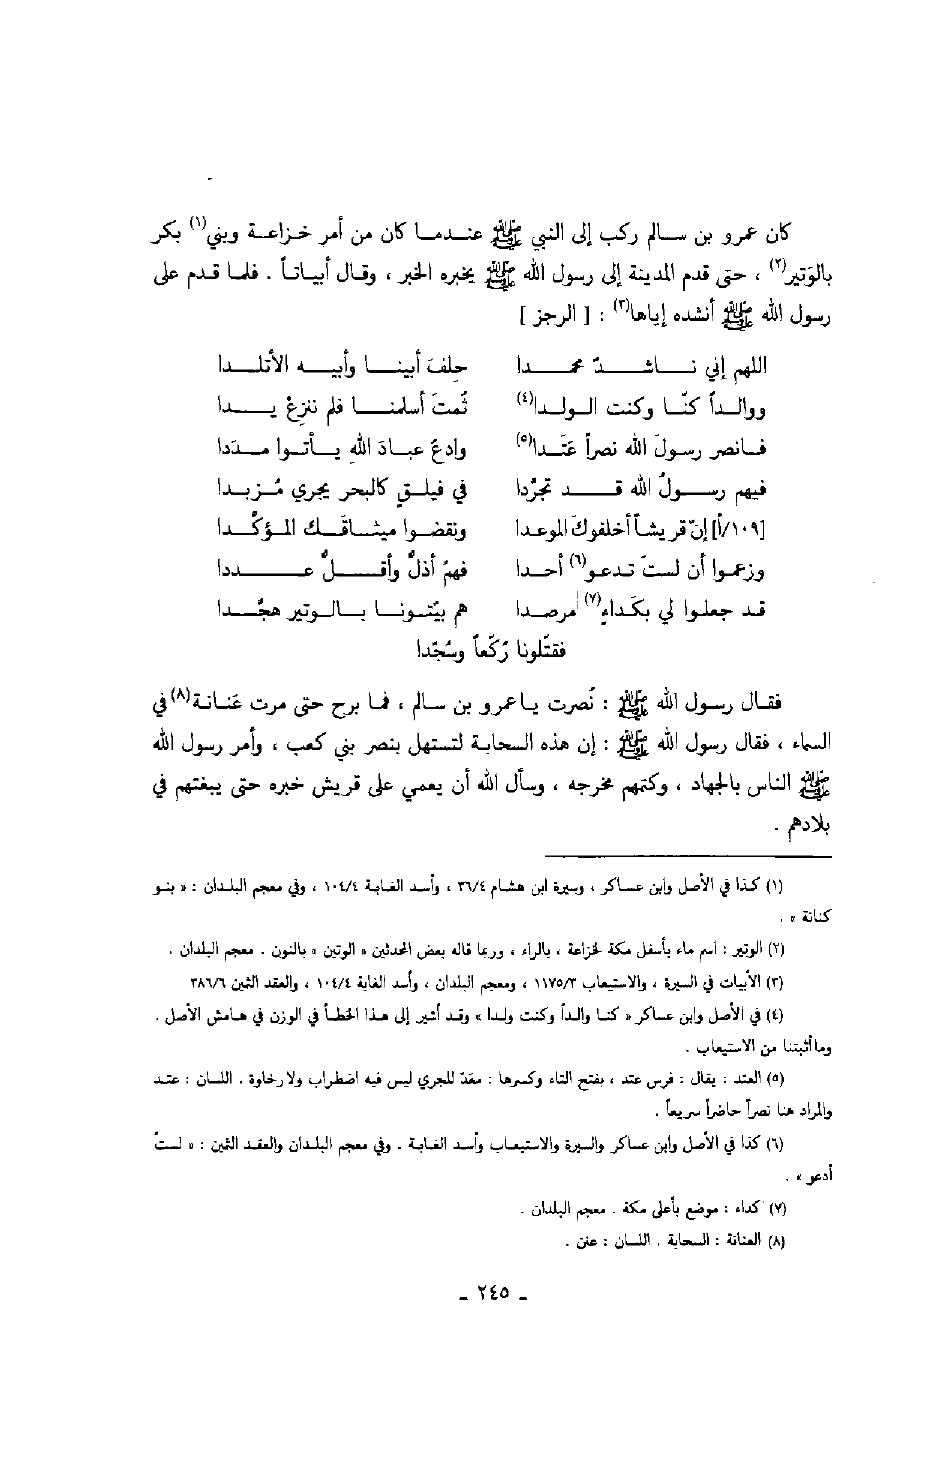 كان عمرو بن سالم ركب إلى النبي ﷺ عندما كان من أمر خزاعة وبني(١) بكر
بالوَتير(٢) ، حتى قدم المدينة إلى رسول الله ﷺ يخبره الخبر ، وقال أبياتاً . فلما قدم على
رسول الله ﷺ أنشده إياها(٣) : [ الرجز ]
اللهم إني ناشدٌ محمدا حِلفَ أبينا وأبيه الأتلدا
ووالداً كنّا وكنت الولدا(٤) ثُمتَ أسلمنا فلم ننزعْ يدا
فانصر رسولَ الله نصراً عَتَدا(٥) وادعُ عبادَ اللهِ يأتوا مدَدا
فيهم رسولُ الله قد تجرَّدا في فيلقٍ كالبحر يجري مُزبدا
[١٠٩/أ] إنّ قريشاً أخلفوكَ الموعدا ونقضوا ميثاقَك المؤكَّدا
وزعموا أن لستَ تدعو(٦) أحدا فهمُ أذلُّ وأقلُّ عددا
قد جعلوا لي بكَداءٍ(٧) مرصدا هم بيَّتونا بالوتير هجَّدا
فقتَّلونا رُكّعاً وسُجّدا
فقال رسول الله ﷺ : نُصرت يا عمرو بن سالم ، فما برح حتى مرت عَنانة(٨) في
السماء ، فقال رسول الله ﷺ : إن هذه السحابة لتستهل بنصر بني كعب ، وأمر رسول الله
ﷺ الناس بالجهاد ، وكتمهم مخرجه ، وسأل الله أن يعمي على قريش خبره حتى يبغتهم في
بلادهم .
(١) كذا في الأصل وابن عساكر ، وسيرة ابن هشام ٣٦/٤ ، وأسد الغابة ١٠٤/٤ ، وفي معجم البلدان : « بنو
كنانة » .
(٢) الوتير : اسم ماء بأسفل مكة لخزاعة ، بالراء ، وربما قاله بعض المحدثين « الوتين » بالنون . معجم البلدان .
(٣) الأبيات في السيرة ، والاستيعاب ١١٧٥/٣ ، ومعجم البلدان ، وأسد الغابة ١٠٤/٤ ، والعقد الثمين ٣٨٦/٦
(٤) في الأصل وابن عساكر « كنا والداً وكنت ولدا » وقد أشير إلى هذا الخطأ في الوزن في هامش الأصل .
وما أثبتنا من الاستيعاب .
(٥) العتد : يقال : فرس عتد ، بفتح التاء وكسرها : معَدّ للجري ليس فيه اضطراب ولا رخاوة . اللسان : عتد
والمراد هنا نصراً حاضراً سريعاً .
(٦) كذا في الأصل وابن عساكر والسيرة والاستيعاب وأسد الغابة . وفي معجم البلدان والعقد الثمين : « لستُ
أدعو » .
(٧) كداء : موضع بأعلى مكة . معجم البلدان .
(٨) العنانة : السحابة . اللسان : عنن .
ـ ٢٤٥ ـ